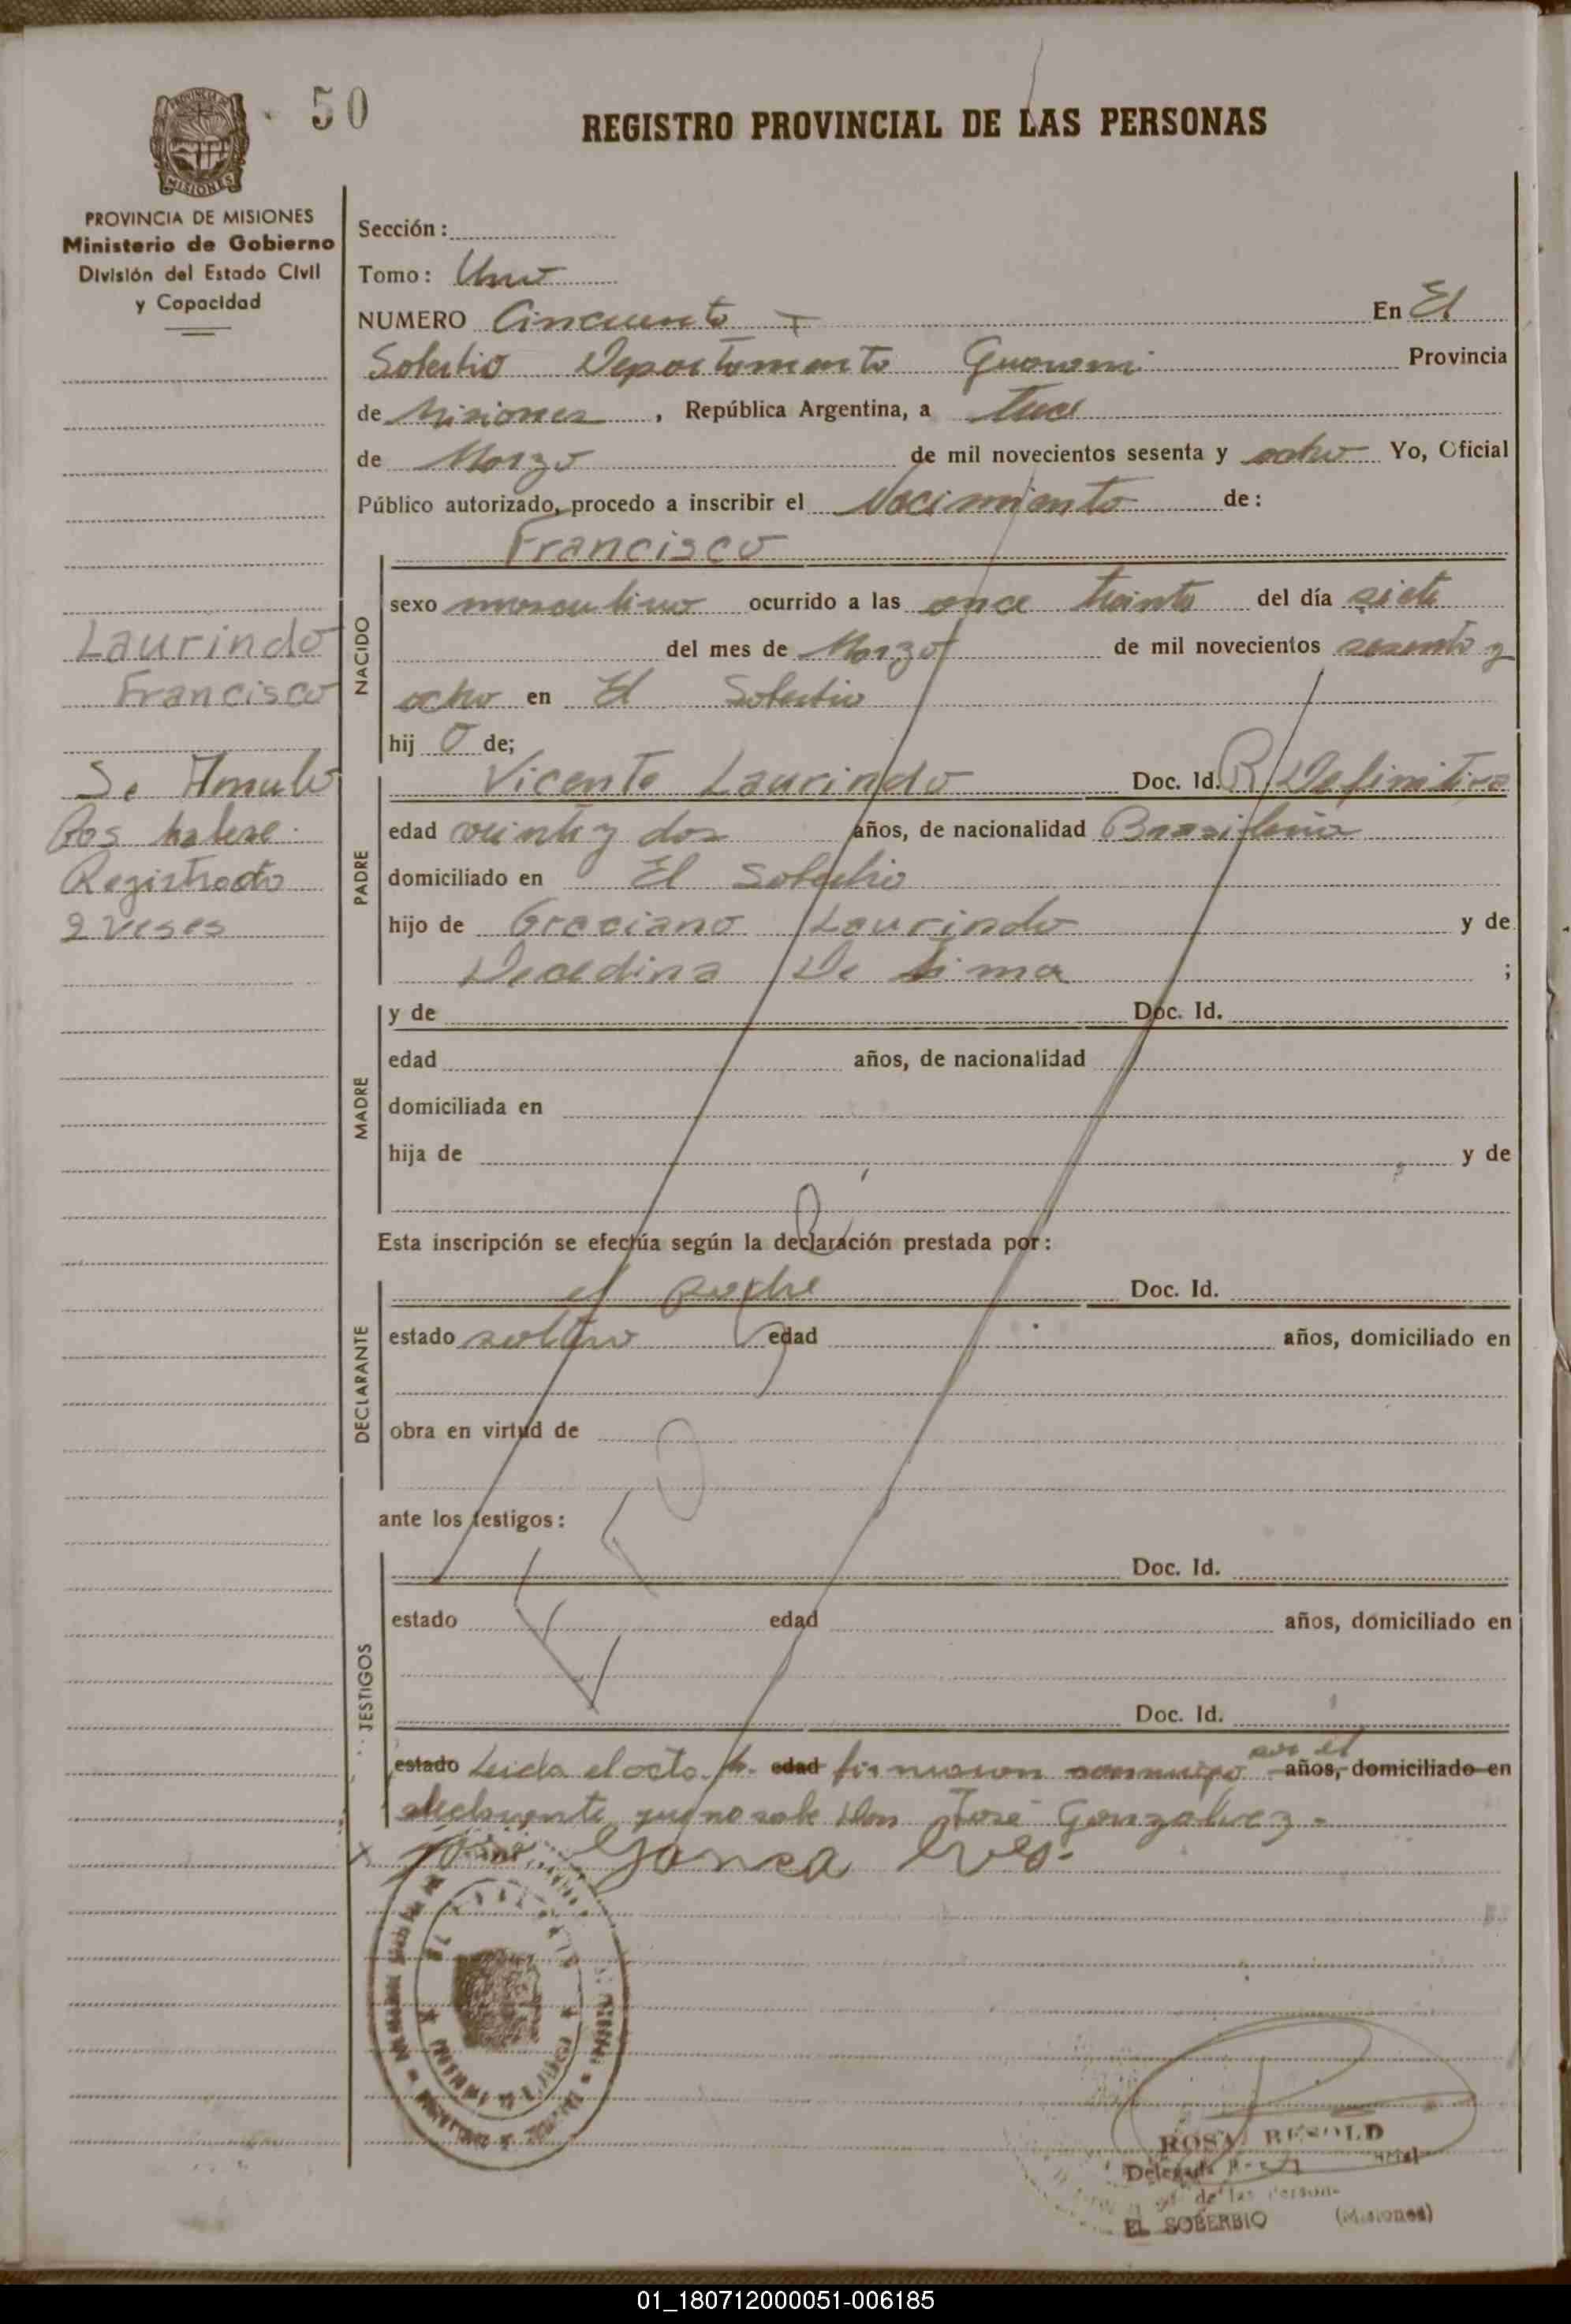 50
REGISTRO PROVINCIAL DE LAS PERSONAS
PROVINCIA DE MISIONES
MISIONES
PROVINCIA DE MISIONES
Ministerio de Gobierno
División del Estado Civil
y Capacidad
Laurindo
Francisco
Se Anulo
Registrado
2 veses
Sección:
Tomo: Uno
NUMERO Cincuenta En El
Soberbio Departamento Guarani Provincia
de Misiones, República Argentina, a
de Marzo de mil novecientos sesenta y ocho Yo, Oficial
Público autorizado, procedo a inscribir el Nacimiento de:
Francisco
NACIDO
sexo masculino ocurrido a las once treinta del día siete
del mes de Marzo de mil novecientos sesenta y
ocho en El Soberbio
hij o de;
PADRE
Vicente Laurindo Doc. Id. R. Definitiva
edad veinte y dos años, de nacionalidad Brasileña
domiciliado en El Soberbio
hijo de Graciano Laurindo y de
De Lima ;
MADRE
y de Doc. Id.
edad años, de nacionalidad
domiciliada en
hija de y de
Esta inscripción se efectúa según la declaración prestada por:
DECLARANTE
el padre Doc. Id.
estado soltero edad años, domiciliado en
obra en virtud de
ante los testigos:
TESTIGOS
Doc. Id.
estado edad años, domiciliado en
Doc. Id.
estado Leida el acta la edad firmaron conmigo por el años, domiciliado en
declarante que no sabe Don José Gonzalvez.-
x
ROSA
Delegada
de las Person
EL SOBERBIO (Misiones)
01_180712000051-006185